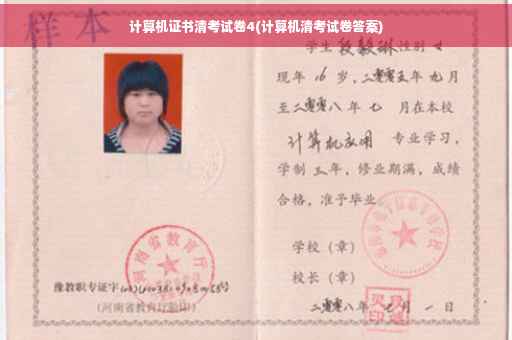 计算机证书清考试卷4(计算机清考试卷答案)
样本
学生段毅琳性别女
现年16岁，二零零五年九月
至二零零八年七月在本校
计算机应用 专业学习，
学制三年，修业期满，成绩
合格，准予毕业
学校（章）
校长（章）
二零零八年七月一日
河南省教育厅
豫教职专证字
(河南省教育厅验印)